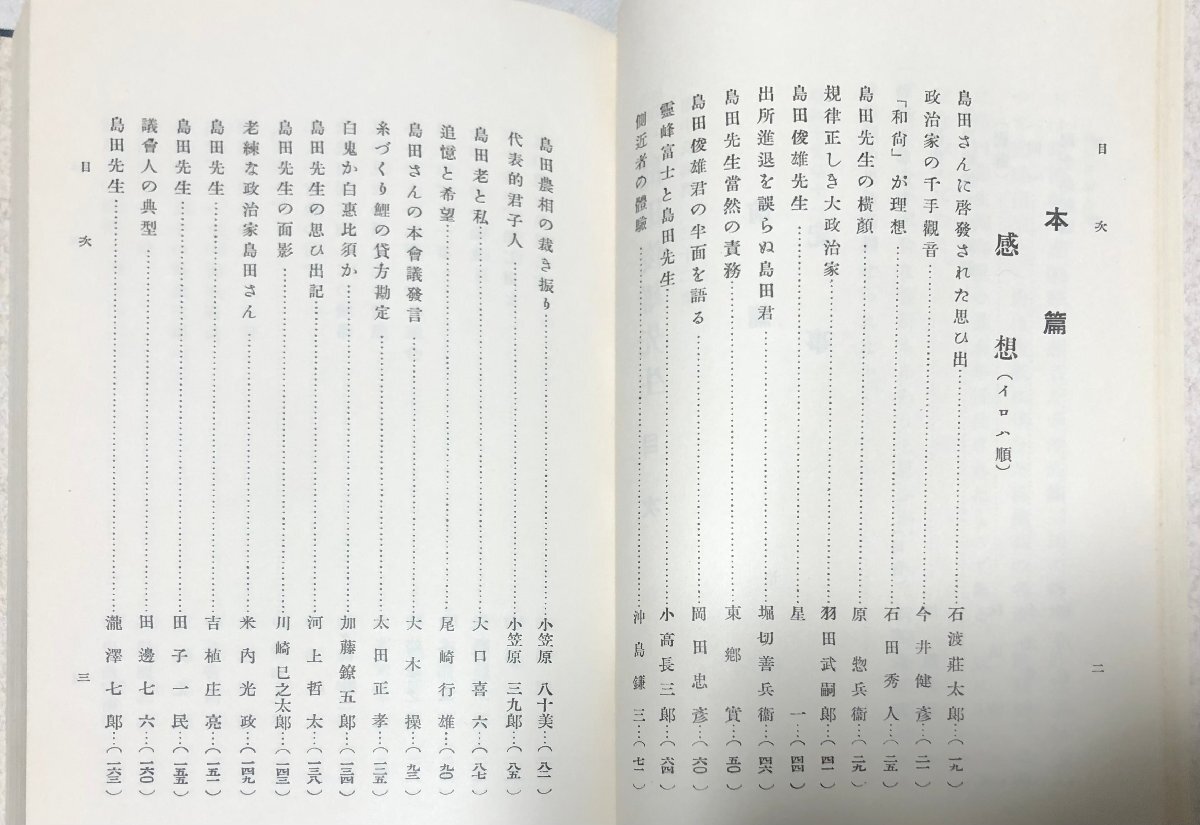 目次
本篇
感想(イロハ順)
島田さんに啓發された思ひ出…石渡莊太郎…(一九)
政治家の千手觀音…今井健彥…(二一)
「和尙」が理想…石田秀人…(二五)
島田先生の橫顏…原惣兵衞…(二九)
規律正しき大政治家…羽田武嗣郎…(四一)
島田俊雄先生…星一…(四四)
出所進退を誤らぬ島田君…堀切善兵衞…(四六)
島田先生當然の責務…東鄕實…(五〇)
島田俊雄君の半面を語る…岡田忠彥…(六〇)
靈峰富士と島田先生…小高長三郎…(六四)
側近者の體驗…沖島鎌三…(七一)
二
島田農相の裁き振り…小笠原八十美…(八二)
代表的君子人…小笠原三九郎…(八五)
島田老と私…大口喜六…(八七)
追憶と希望…尾崎行雄…(九〇)
島田さんの本會議發言…大木操…(九三)
糸づくり鯉の貸方勘定…太田正孝…(一二五)
白鬼か白惠比須か…加藤鐐五郎…(一三四)
島田先生の思ひ出記…河上哲太…(一三八)
島田先生の面影…川崎巳之太郎…(一四三)
老練な政治家島田さん…米內光政…(一四九)
島田先生…吉植庄亮…(一五二)
島田先生…田子一民…(一五五)
議會人の典型…田邊七六…(一六〇)
島田先生…瀧澤七郎…(一六三)
目次
三